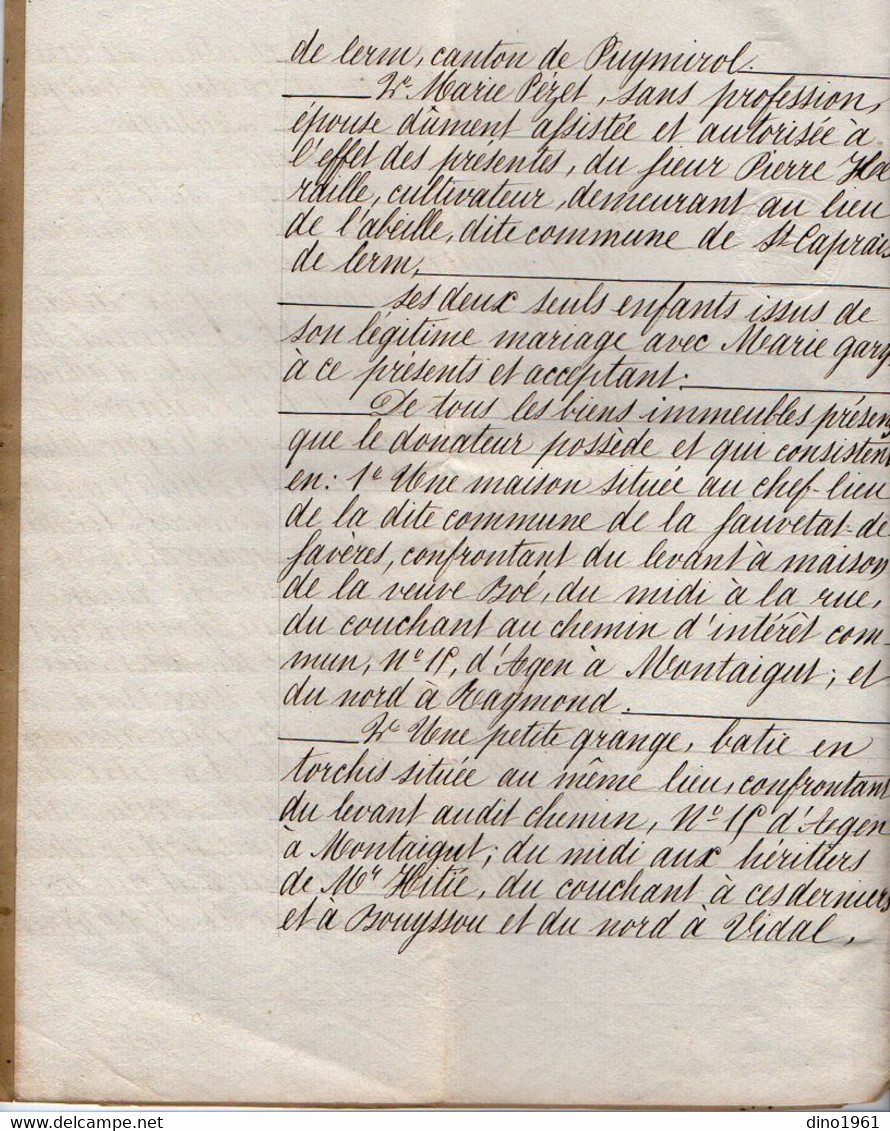 de lerm, canton de Puymirol.
2º Marie Pézet, sans profession,
épouse dûment assistée et autorisée à
l'effet des présentes, du sieur Pierre
raille, cultivateur, demeurant au lieu
de l'abeille, dite commune de St Caprais
de lerm,
ses deux seuls enfants issus de
son légitime mariage avec Marie gary
à ce présents et acceptant:
De tous les biens immeubles présen
que le donateur possède et qui consistent
en: 1º Une maison située au chef-lieu
de la dite commune de la sauvetat-de-
savères, confrontant du levant à maison
de la veuve Boé, du midi à la rue,
du couchant au chemin d'intérêt com-
mun, Nº d'Agen à Montaigut; et
du nord à Raymond.
2º Une petite grange, batie en
torchis située au même lieu, confrontant
du levant audit chemin, Nº d'Agen
à Montaigut; du midi aux héritiers
de Mr Hitié, du couchant à ces derniers
et à Bouyssou et du nord à Vidal,
dino1961